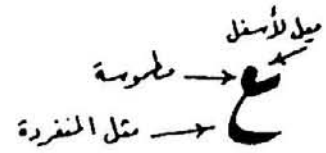 ميل لأسفل
مطموسة
ع
مثل المنفردة